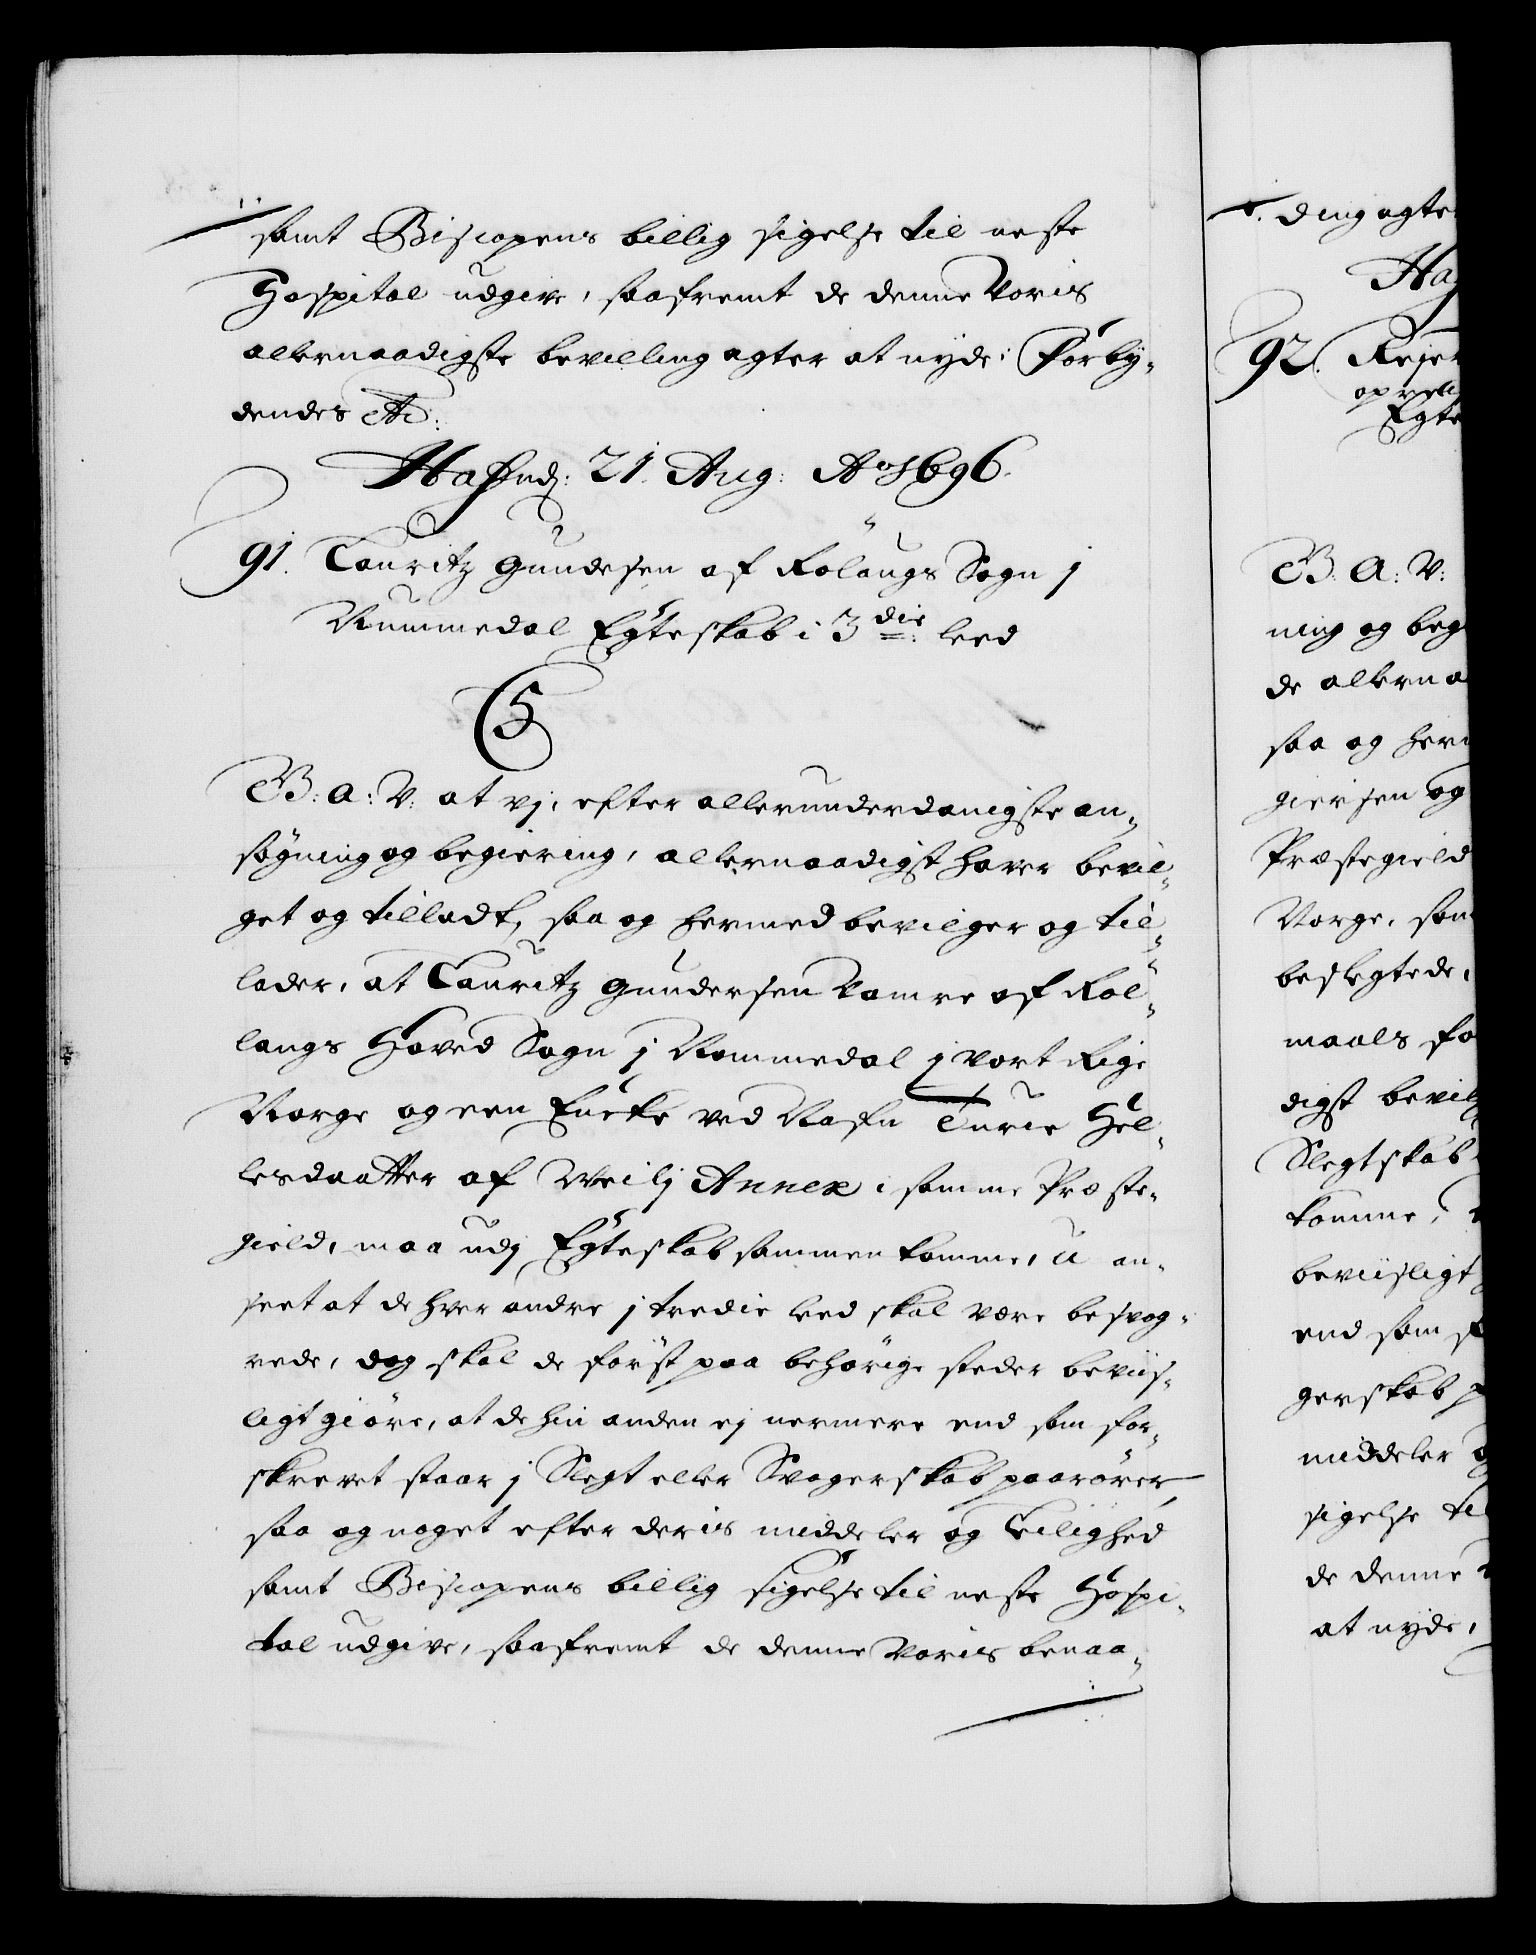 samt Biscopens billig sigelse til neste
Hospital udgive, saafremt de denne Voris
allernaadigste bevilling agter at nyde: Forby-
dendes Etc:
Hafnj: 21. Aug: Ao 1696.
91. Lauritz Gundesen af Rolaugs Sogn j
Nummedal Egteskab i 3die led
5
G: A: V: at vj, efter allerunderdanigste an-
søgning og begiering, allernaadigst haver bevil-
get og tilladt, saa og hermed bevilger og til-
lader, at Lauritz Gundersen Vamre af Rol-
laugs Hoved Sogn j Nommedal j vort Rige
Norge og een Encke ved Nafn Turie Hel-
lesdaatter af Weilj Annex i samme Præste-
gield, maa udj Egteskab sammen komme, u an-
seet at de hver andre j tredie led skal være besvog-
rede, dog skal de først paa behørige steder beviis-
ligt giøre, at de hin anden ej nermere end som for-
skrevet staar j Slegt eller Svogerskab paarører,
saa og noget efter deris middeler og Leilighed
samt Biscopens billig sigelse til neste Hospi-
tal udgive, saafremt de denne Voris benaa-
ding agte
Haf
92. Rejer
Egte
G: A: V:
ning og beg
de allerna
saa og herm
giersen og
Præstegield
Norge, som
beslegtede,
maals fo
digst bevil
Slegtskab
komme,
beviisligt
end som f
gerskab p
middeler o
sigelse til
de denne V
at nyde,